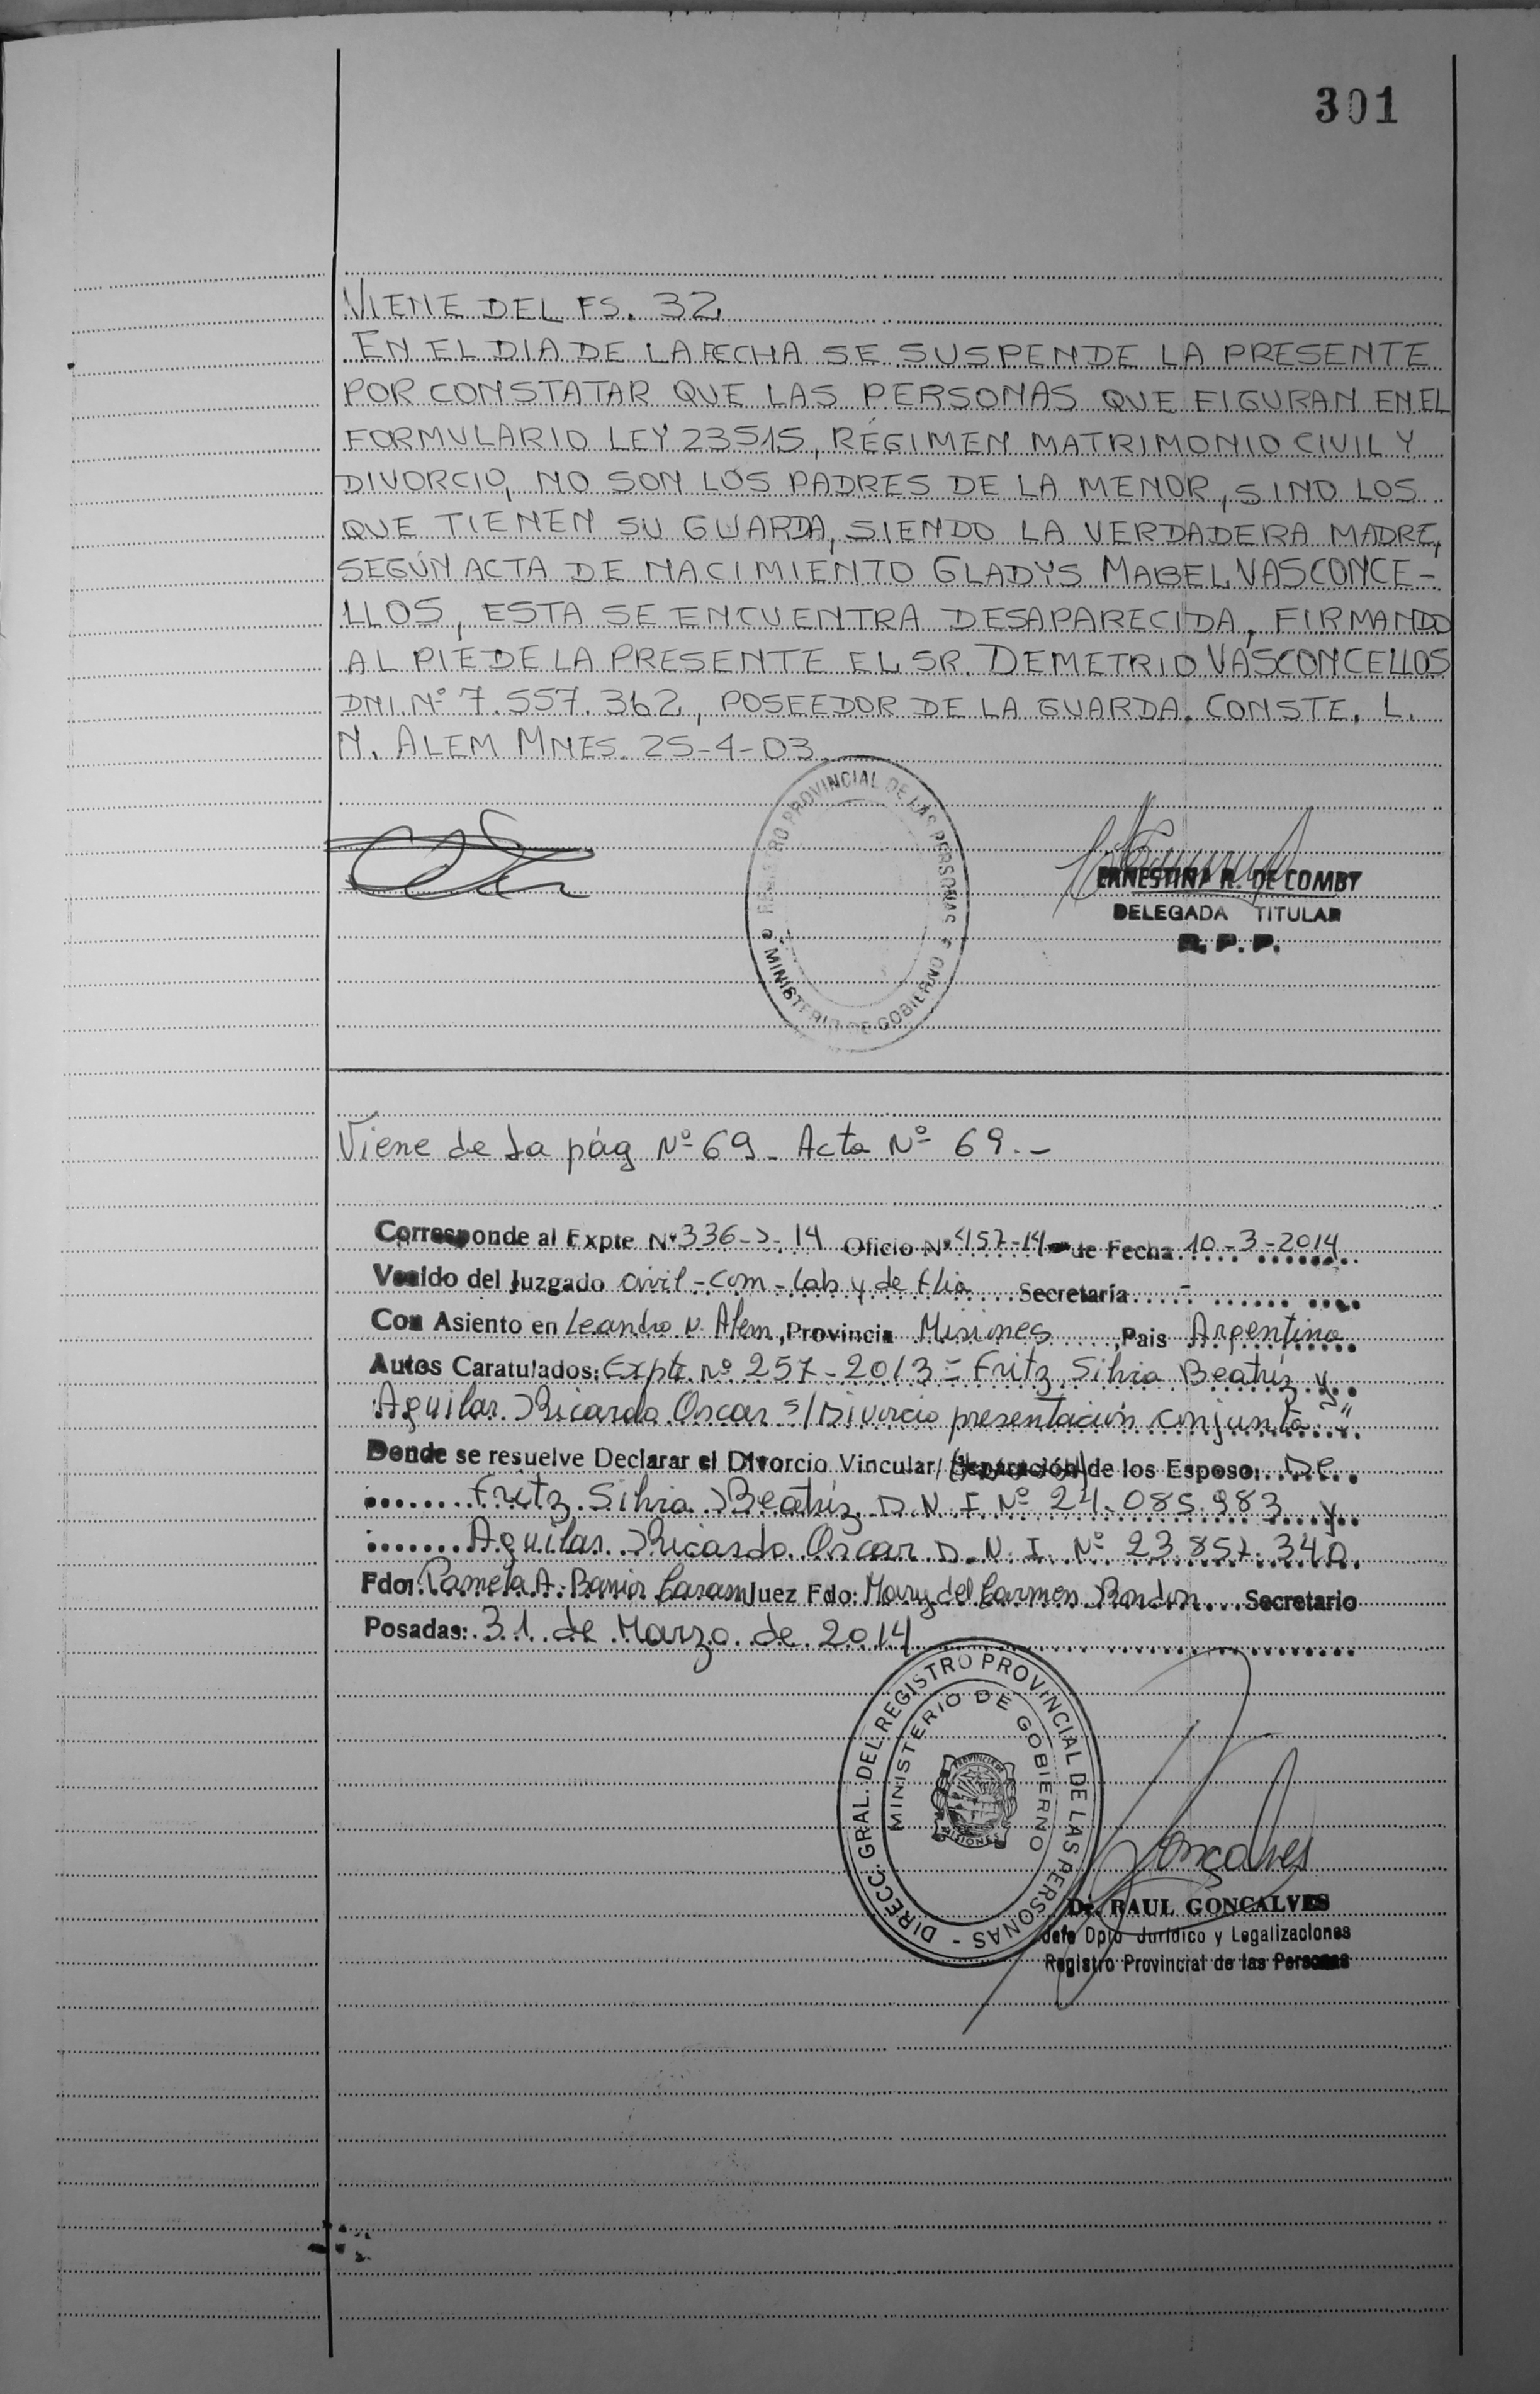 301
VIENE DEL FS. 32
EN EL DIA DE LA FECHA SE SUSPENDE LA PRESENTE
POR CONSTATAR QUE LAS PERSONAS QUE FIGURAN EN EL
FORMULARIO LEY 23515, RÉGIMEN MATRIMONIO CIVIL Y
DIVORCIO, NO SON LOS PADRES DE LA MENOR, SINO LOS
QUE TIENEN SU GUARDA, SIENDO LA VERDADERA MADRE,
SEGÚN ACTA DE NACIMIENTO GLADYS MABEL VASCONCE-
LLOS, ESTA SE ENCUENTRA DESAPARECIDA, FIRMANDO
AL PIE DE LA PRESENTE EL SR. DEMETRIO VASCONCELLOS
DNI. Nº 7.557.362, POSEEDOR DE LA GUARDA. CONSTE. L.
N. ALEM MNES. 25-4-03
REGISTRO PROVINCIAL DE LAS PERSONAS
MINISTERIO DE GOBIERNO
ERNESTINA R. DE COMBY
DELEGADA TITULAR
R. P. P.
Viene de la pág Nº 69 - Acta Nº 69.-
Corresponde al Expte Nº 336-J-14 Oficio Nº 457-14 de Fecha 10-3-2014
Venido del Juzgado Civil-Com-Lab y de Flia Secretaría -
Con Asiento en Leandro N. Alem, Provincia Misiones, Pais Argentina
Autos Caratulados: Expte Nº 257-2013 = Fritz Silvia Beatriz y
Aguilar Ricardo Oscar s/Divorcio presentación conjunta"
Donde se resuelve Declarar el Divorcio Vincular/ (Separación) de los Esposo: De
Fritz Silvia Beatriz D.N.I. Nº 24.085.983 y
Aguilar Ricardo Oscar D.N.I. Nº 23.857.340
Fdo: Pamela A. Juez Fdo: Mary del Carmen Secretario
Posadas: 31 de Marzo de 2014
DIRECC. GRAL. DEL REGISTRO PROVINCIAL DE LAS PERSONAS -
MINISTERIO DE GOBIERNO
PROVINCIA DE
MISIONES
Gonçalves
Dr. RAUL GONCALVES
Jefe Dpto Jurídico y Legalizaciones
Registro Provincial de las Personas